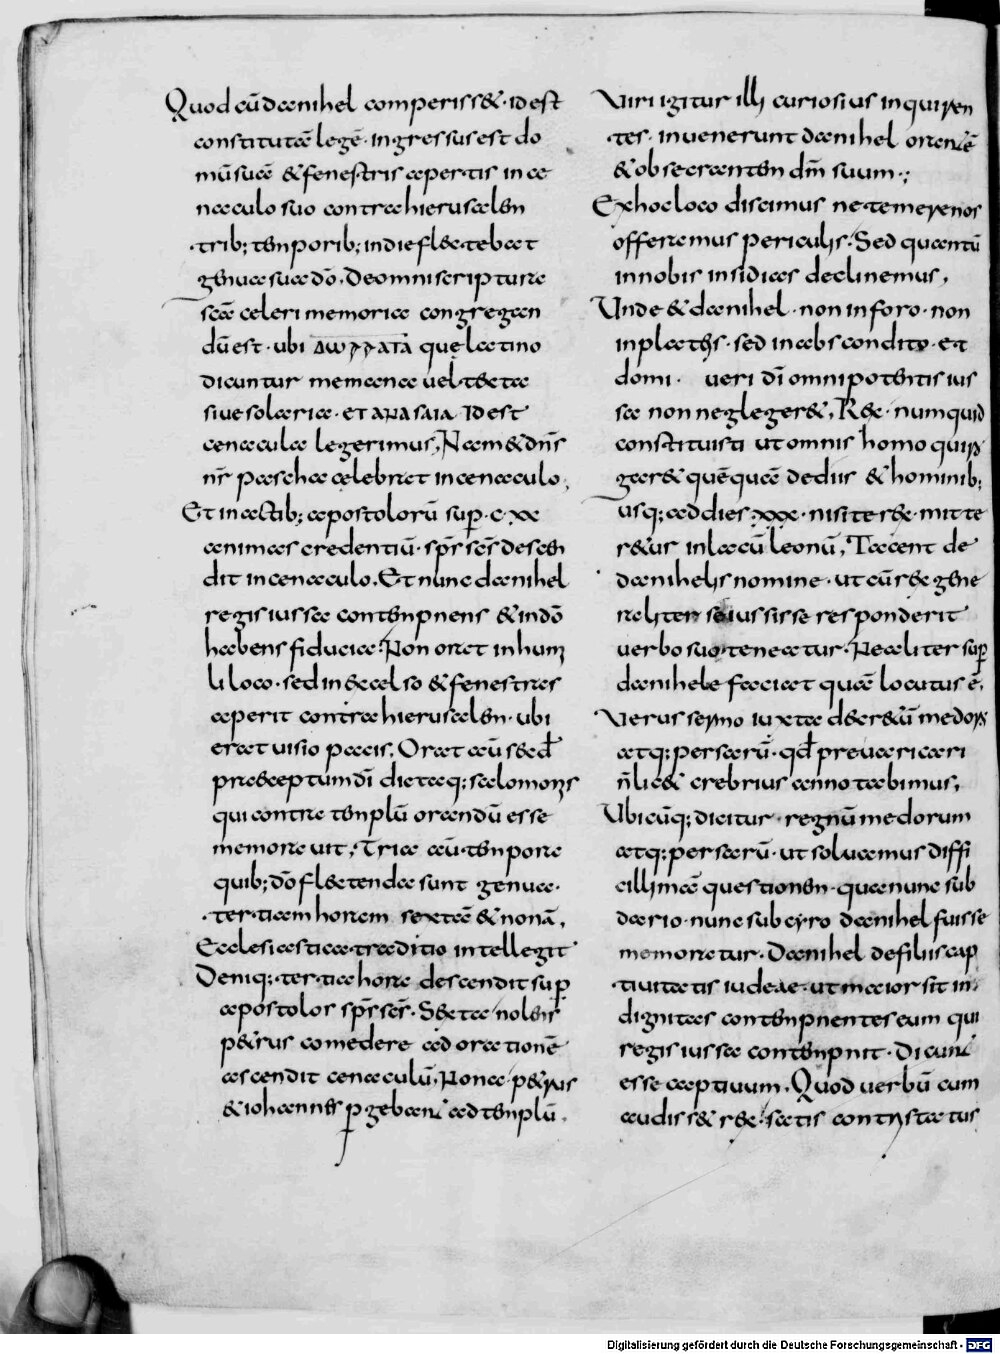 Quod cū danihel comperiss&· id est
constitutā legē· ingressus est do
mū suā & fenestris aper·tis in ce
naculo suo contra hierusalem
·trib; temporib; in die flectebat
genua sua dō. De omni scriptura
scā celeri memoria congregan
dū est· ubi ΔωΜΑΤΑ quę latino
dicuntur meniana uel tecta
siue solaria· et ΑΝΑΓΑΙΑ id est
cenacula legerimus, Nam & dn̄s
nr̄ pascha celebrat in cenaculo,
Et in actib; apostolorū sup· c·xx
animas credentiū· sps̄ scs̄ descen
dit in cenaculo. Et nunc danihel
regis iussa contempnens & in dō
habens fiducia· Non orat in humi
li loco· sed in excelso & fenestras
aperit contra hierusalem· ubi
erat uisio pacis. Orat aū secd̄
praeceptum dī dictaq; salomonis
qui contra templū orandū esse
memorauit, Tria aū tempora
quib; dō flectenda sunt genua·
·ter·tiam horam sextā & nonā,
Ecclesiastica traditio intellegit
Deniq;·ter·tia hora descendit sup
apostolos sps̄ scs̄· Sexta nolens
p&rus comedere ad orationē
ascendit cenaculū, Nona p&rus
& iohannes pgebant ad templū.
Viri igitur illi curiosius inquiren
·tes· inuenerunt danihel orantē
& obsecrantem dm̄ suum·;
Ex hoc loco discimus ne temere nos
offeramus periculis· Sed quantū
in nobis insidias declinemus,
Unde & danihel· non in foro· non
in plateis· sed in abscondito· et
domi· ueri dī omnipotentis ius
sa non neglegeret, Rex· numquid
constituisti ut omnis homo qui ro
gar& quēquā de diis & hominib;
usq; ad dies xxx· nisi te rex· mitte
r&ur in lacū leonū, Tacent de
danihelis nomine· ut cū rex gene
raliter se iussisse responderit
uerbo suo teneatur· Ne aliter sup
danihele faciat quā locutus ē.
Verus sermo iuxta decr&ū medorū
atq; persarū· qd̄ preuaricari
n̄ lic& crebrius annotabimus,
Ubicūq; dicitur regnū medorum
atq; persarū· ut soluamus diffi
cillimā questionem· qua nunc sub
dario· nunc sub cyro danihel fuisse
memoratur. Danihel de filiis cap
·tiuitatis iudeae· ut maior sīt in·
dignitas contempnentes eum qui
regis iussa contempnit· Dicunt
esse captiuum, Quod uerbū cum
audiss& rex· satis contristatus
Digitalisierung gefördert durch die Deutsche Forschungsgemeinschaft - DFG